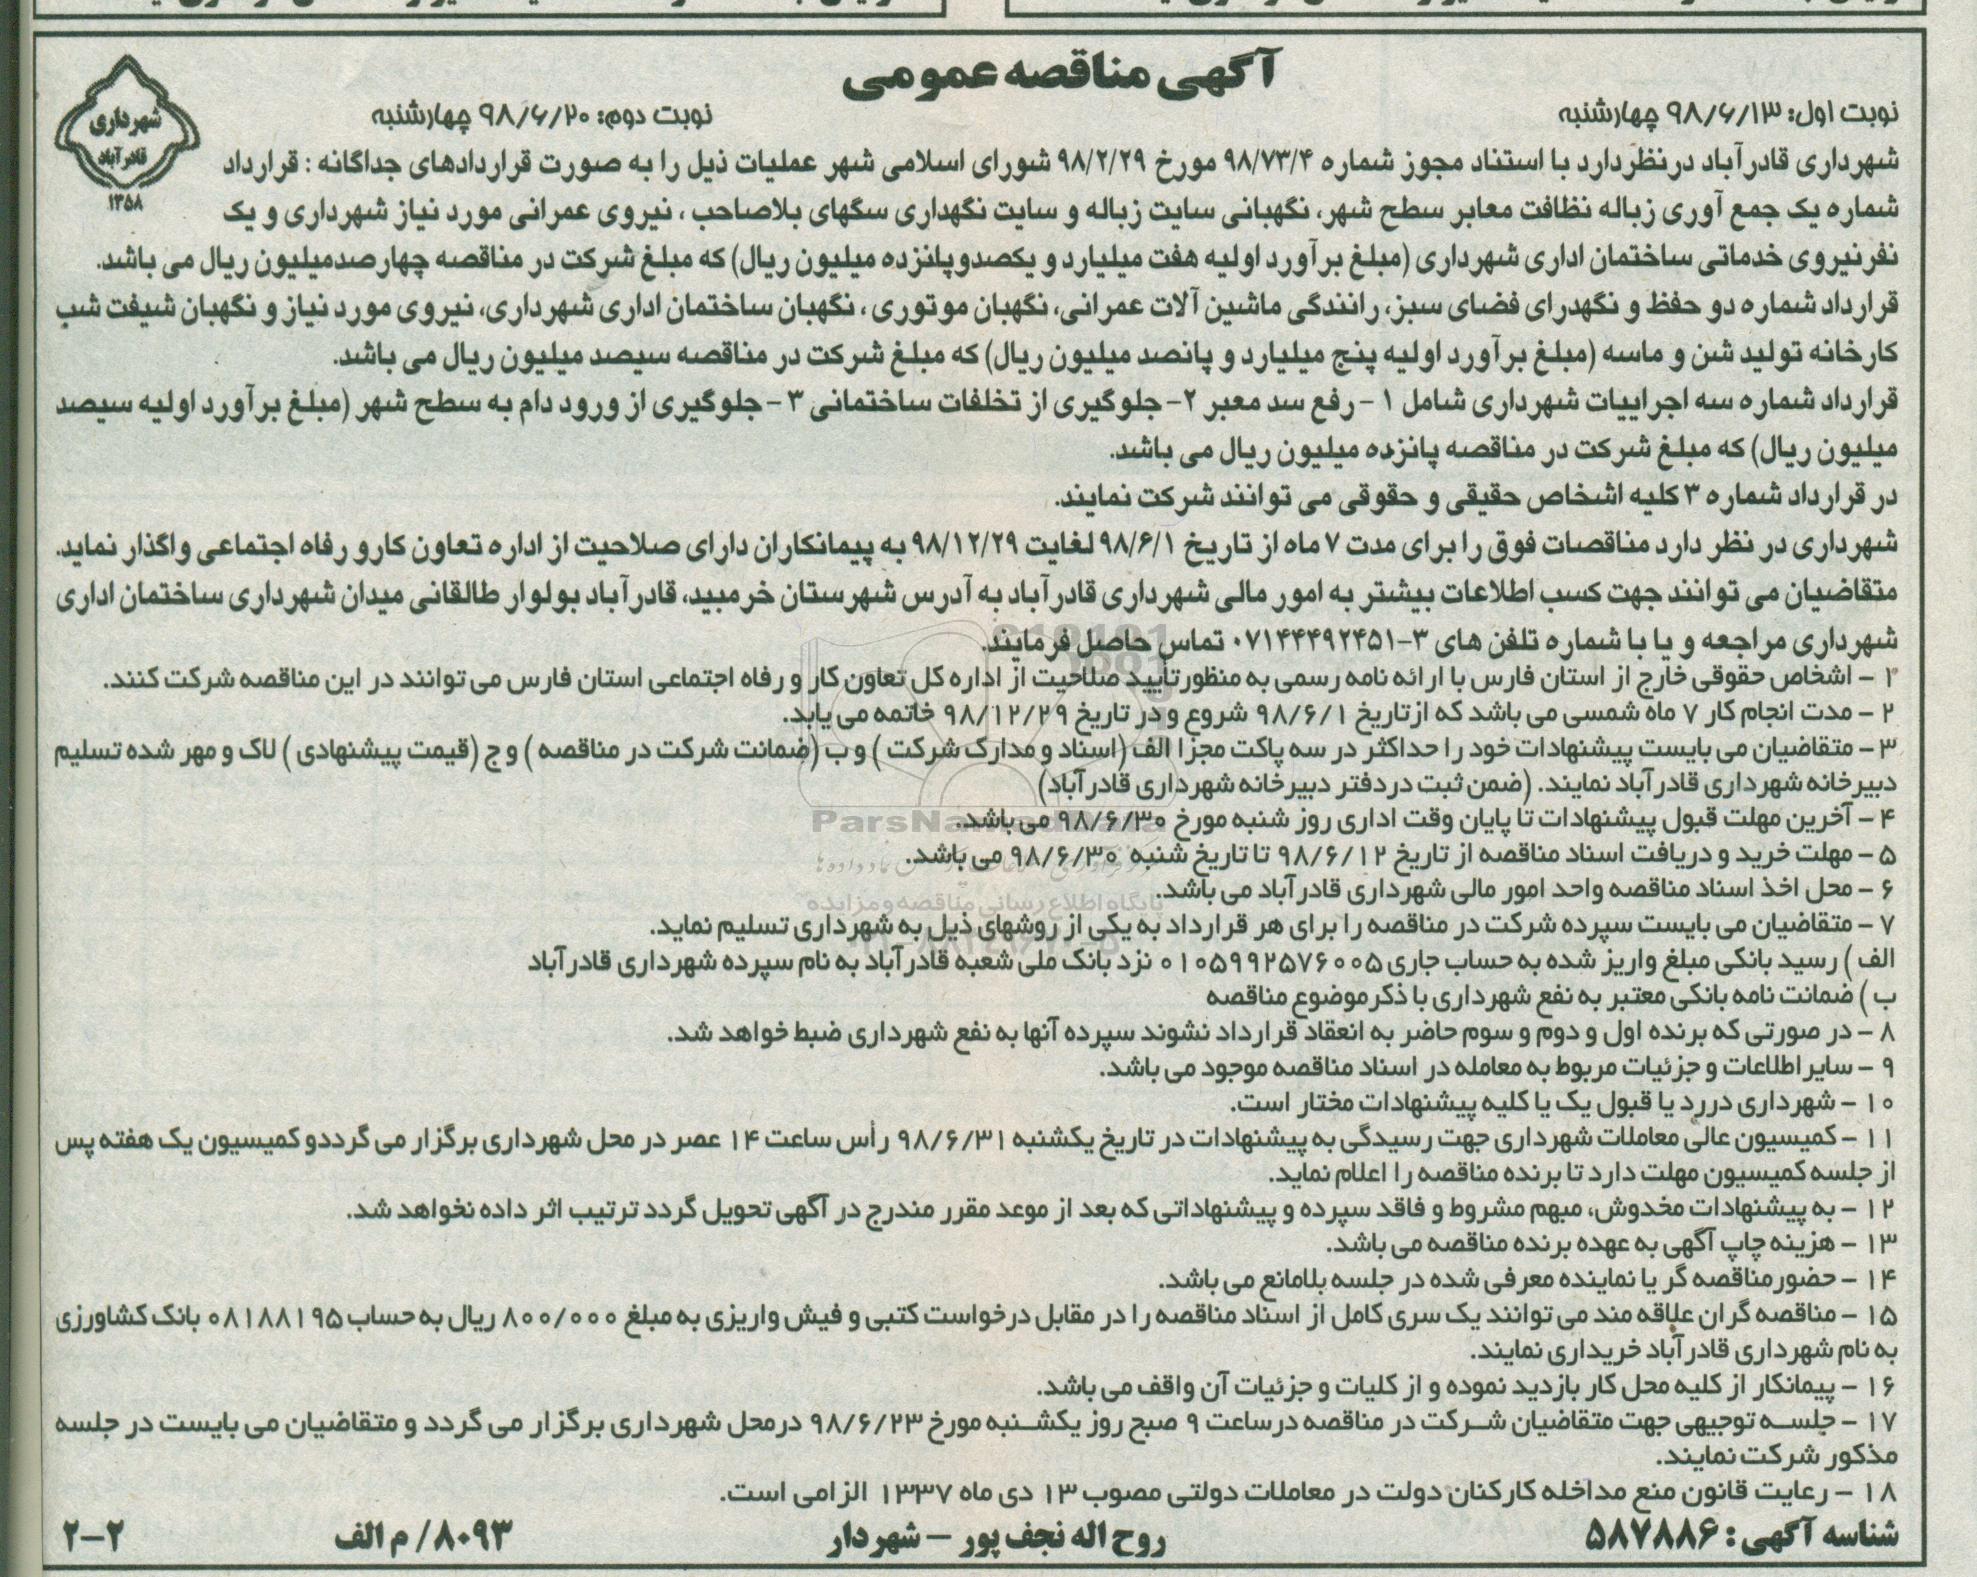 آگهی مناقصه عمومی
نوبت اول: ۹۸/۶/۱۳ چهارشنبه
نوبت دوم: ۹۸/۶/۲۰ چهارشنبه
شهرداری
قادرآباد
۱۳۵۸
شهرداری قادرآباد درنظردارد با استناد مجوز شماره ۹۸/۷۳/۴ مورخ ۹۸/۲/۲۹ شورای اسلامی شهر عملیات ذیل را به صورت قراردادهای جداگانه : قرارداد
شماره یک جمع آوری زباله نظافت معابر سطح شهر، نگهبانی سایت زباله و سایت نگهداری سگهای بلاصاحب ، نیروی عمرانی مورد نیاز شهرداری و یک
نفرنیروی خدماتی ساختمان اداری شهرداری (مبلغ برآورد اولیه هفت میلیارد و یکصدوپانزده میلیون ریال) که مبلغ شرکت در مناقصه چهارصدمیلیون ریال می باشد.
قرارداد شماره دو حفظ و نگهدرای فضای سبز، رانندگی ماشین آلات عمرانی، نگهبان موتوری ، نگهبان ساختمان اداری شهرداری، نیروی مورد نیاز و نگهبان شیفت شب
کارخانه تولید شن و ماسه (مبلغ برآورد اولیه پنج میلیارد و پانصد میلیون ریال) که مبلغ شرکت در مناقصه سیصد میلیون ریال می باشد.
قرارداد شماره سه اجراییات شهرداری شامل ۱ - رفع سد معبر ۲- جلوگیری از تخلفات ساختمانی ۳ - جلوگیری از ورود دام به سطح شهر (مبلغ برآورد اولیه سیصد
میلیون ریال) که مبلغ شرکت در مناقصه پانزده میلیون ریال می باشد.
در قرارداد شماره ۳ کلیه اشخاص حقیقی و حقوقی می توانند شرکت نمایند.
شهرداری در نظر دارد مناقصات فوق را برای مدت ۷ ماه از تاریخ ۹۸/۶/۱ لغایت ۹۸/۱۲/۲۹ به پیمانکاران دارای صلاحیت از اداره تعاون کارو رفاه اجتماعی واگذار نماید.
متقاضیان می توانند جهت کسب اطلاعات بیشتر به امور مالی شهرداری قادرآباد به آدرس شهرستان خرمبید، قادرآباد بولوار طالقانی میدان شهرداری ساختمان اداری
شهرداری مراجعه و یا با شماره تلفن های ۳-۰۷۱۴۴۴۹۲۴۵۱ تماس حاصل فرمایند.
۱ - اشخاص حقوقی خارج از استان فارس با ارائه نامه رسمی به منظور تأیید صلاحیت از اداره کل تعاون کار و رفاه اجتماعی استان فارس می توانند در این مناقصه شرکت کنند.
۲ - مدت انجام کار ۷ ماه شمسی می باشد که ازتاریخ ۹۸/۶/۱ شروع و در تاریخ ۹۸/۱۲/۲۹ خاتمه می یابد.
۳ - متقاضیان می بایست پیشنهادات خود را حداکثر در سه پاکت مجزا الف (اسناد و مدارک شرکت ) و ب (ضمانت شرکت در مناقصه ) و ج (قیمت پیشنهادی ) لاک و مهر شده تسلیم
دبیرخانه شهرداری قادرآباد نمایند. (ضمن ثبت دردفتر دبیرخانه شهرداری قادرآباد)
۴ - آخرین مهلت قبول پیشنهادات تا پایان وقت اداری روز شنبه مورخ ۹۸/۶/۳۰ می باشد.
۵ - مهلت خرید و دریافت اسناد مناقصه از تاریخ ۹۸/۶/۱۲ تا تاریخ شنبه ۹۸/۶/۳۰ می باشد.
۶ - محل اخذ اسناد مناقصه واحد امور مالی شهرداری قادرآباد می باشد.
۷ - متقاضیان می بایست سپرده شرکت در مناقصه را برای هر قرارداد به یکی از روشهای ذیل به شهرداری تسلیم نماید.
الف ) رسید بانکی مبلغ واریز شده به حساب جاری ۰۱۰۵۹۹۲۵۷۶۰۰۵ نزد بانک ملی شعبه قادرآباد به نام سپرده شهرداری قادرآباد
ب ) ضمانت نامه بانکی معتبر به نفع شهرداری با ذکر موضوع مناقصه
۸ - در صورتی که برنده اول و دوم و سوم حاضر به انعقاد قرارداد نشوند سپرده آنها به نفع شهرداری ضبط خواهد شد.
۹ - سایر اطلاعات و جزئیات مربوط به معامله در اسناد مناقصه موجود می باشد.
۱۰ - شهرداری دررد یا قبول یک یا کلیه پیشنهادات مختار است.
۱۱ - کمیسیون عالی معاملات شهرداری جهت رسیدگی به پیشنهادات در تاریخ یکشنبه ۹۸/۶/۳۱ رأس ساعت ۱۴ عصر در محل شهرداری برگزار می گرددو کمیسیون یک هفته پس
از جلسه کمیسیون مهلت دارد تا برنده مناقصه را اعلام نماید.
۱۲ - به پیشنهادات مخدوش، مبهم مشروط و فاقد سپرده و پیشنهاداتی که بعد از موعد مقرر مندرج در آگهی تحویل گردد ترتیب اثر داده نخواهد شد.
۱۳ - هزینه چاپ آگهی به عهده برنده مناقصه می باشد.
۱۴ - حضورمناقصه گر یا نماینده معرفی شده در جلسه بلامانع می باشد.
۱۵ - مناقصه گران علاقه مند می توانند یک سری کامل از اسناد مناقصه را در مقابل درخواست کتبی و فیش واریزی به مبلغ ۸۰۰/۰۰۰ ریال به حساب ۰۸۱۸۸۱۹۵ بانک کشاورزی
به نام شهرداری قادرآباد خریداری نمایند.
۱۶ - پیمانکار از کلیه محل کار بازدید نموده و از کلیات و جزئیات آن واقف می باشد.
۱۷ - جلسه توجیهی جهت متقاضیان شرکت در مناقصه درساعت ۹ صبح روز یکشنبه مورخ ۹۸/۶/۲۳ درمحل شهرداری برگزار می گردد و متقاضیان می بایست در جلسه
مذکور شرکت نمایند.
۱۸ - رعایت قانون منع مداخله کارکنان دولت در معاملات دولتی مصوب ۱۳ دی ماه ۱۳۳۷ الزامی است.
شناسه آگهی : ۵۸۷۸۸۶
روح اله نجف پور - شهردار
۸۰۹۳/ م الف
۲-۲
پایگاه اطلاع رسانی مناقصه و مزایده